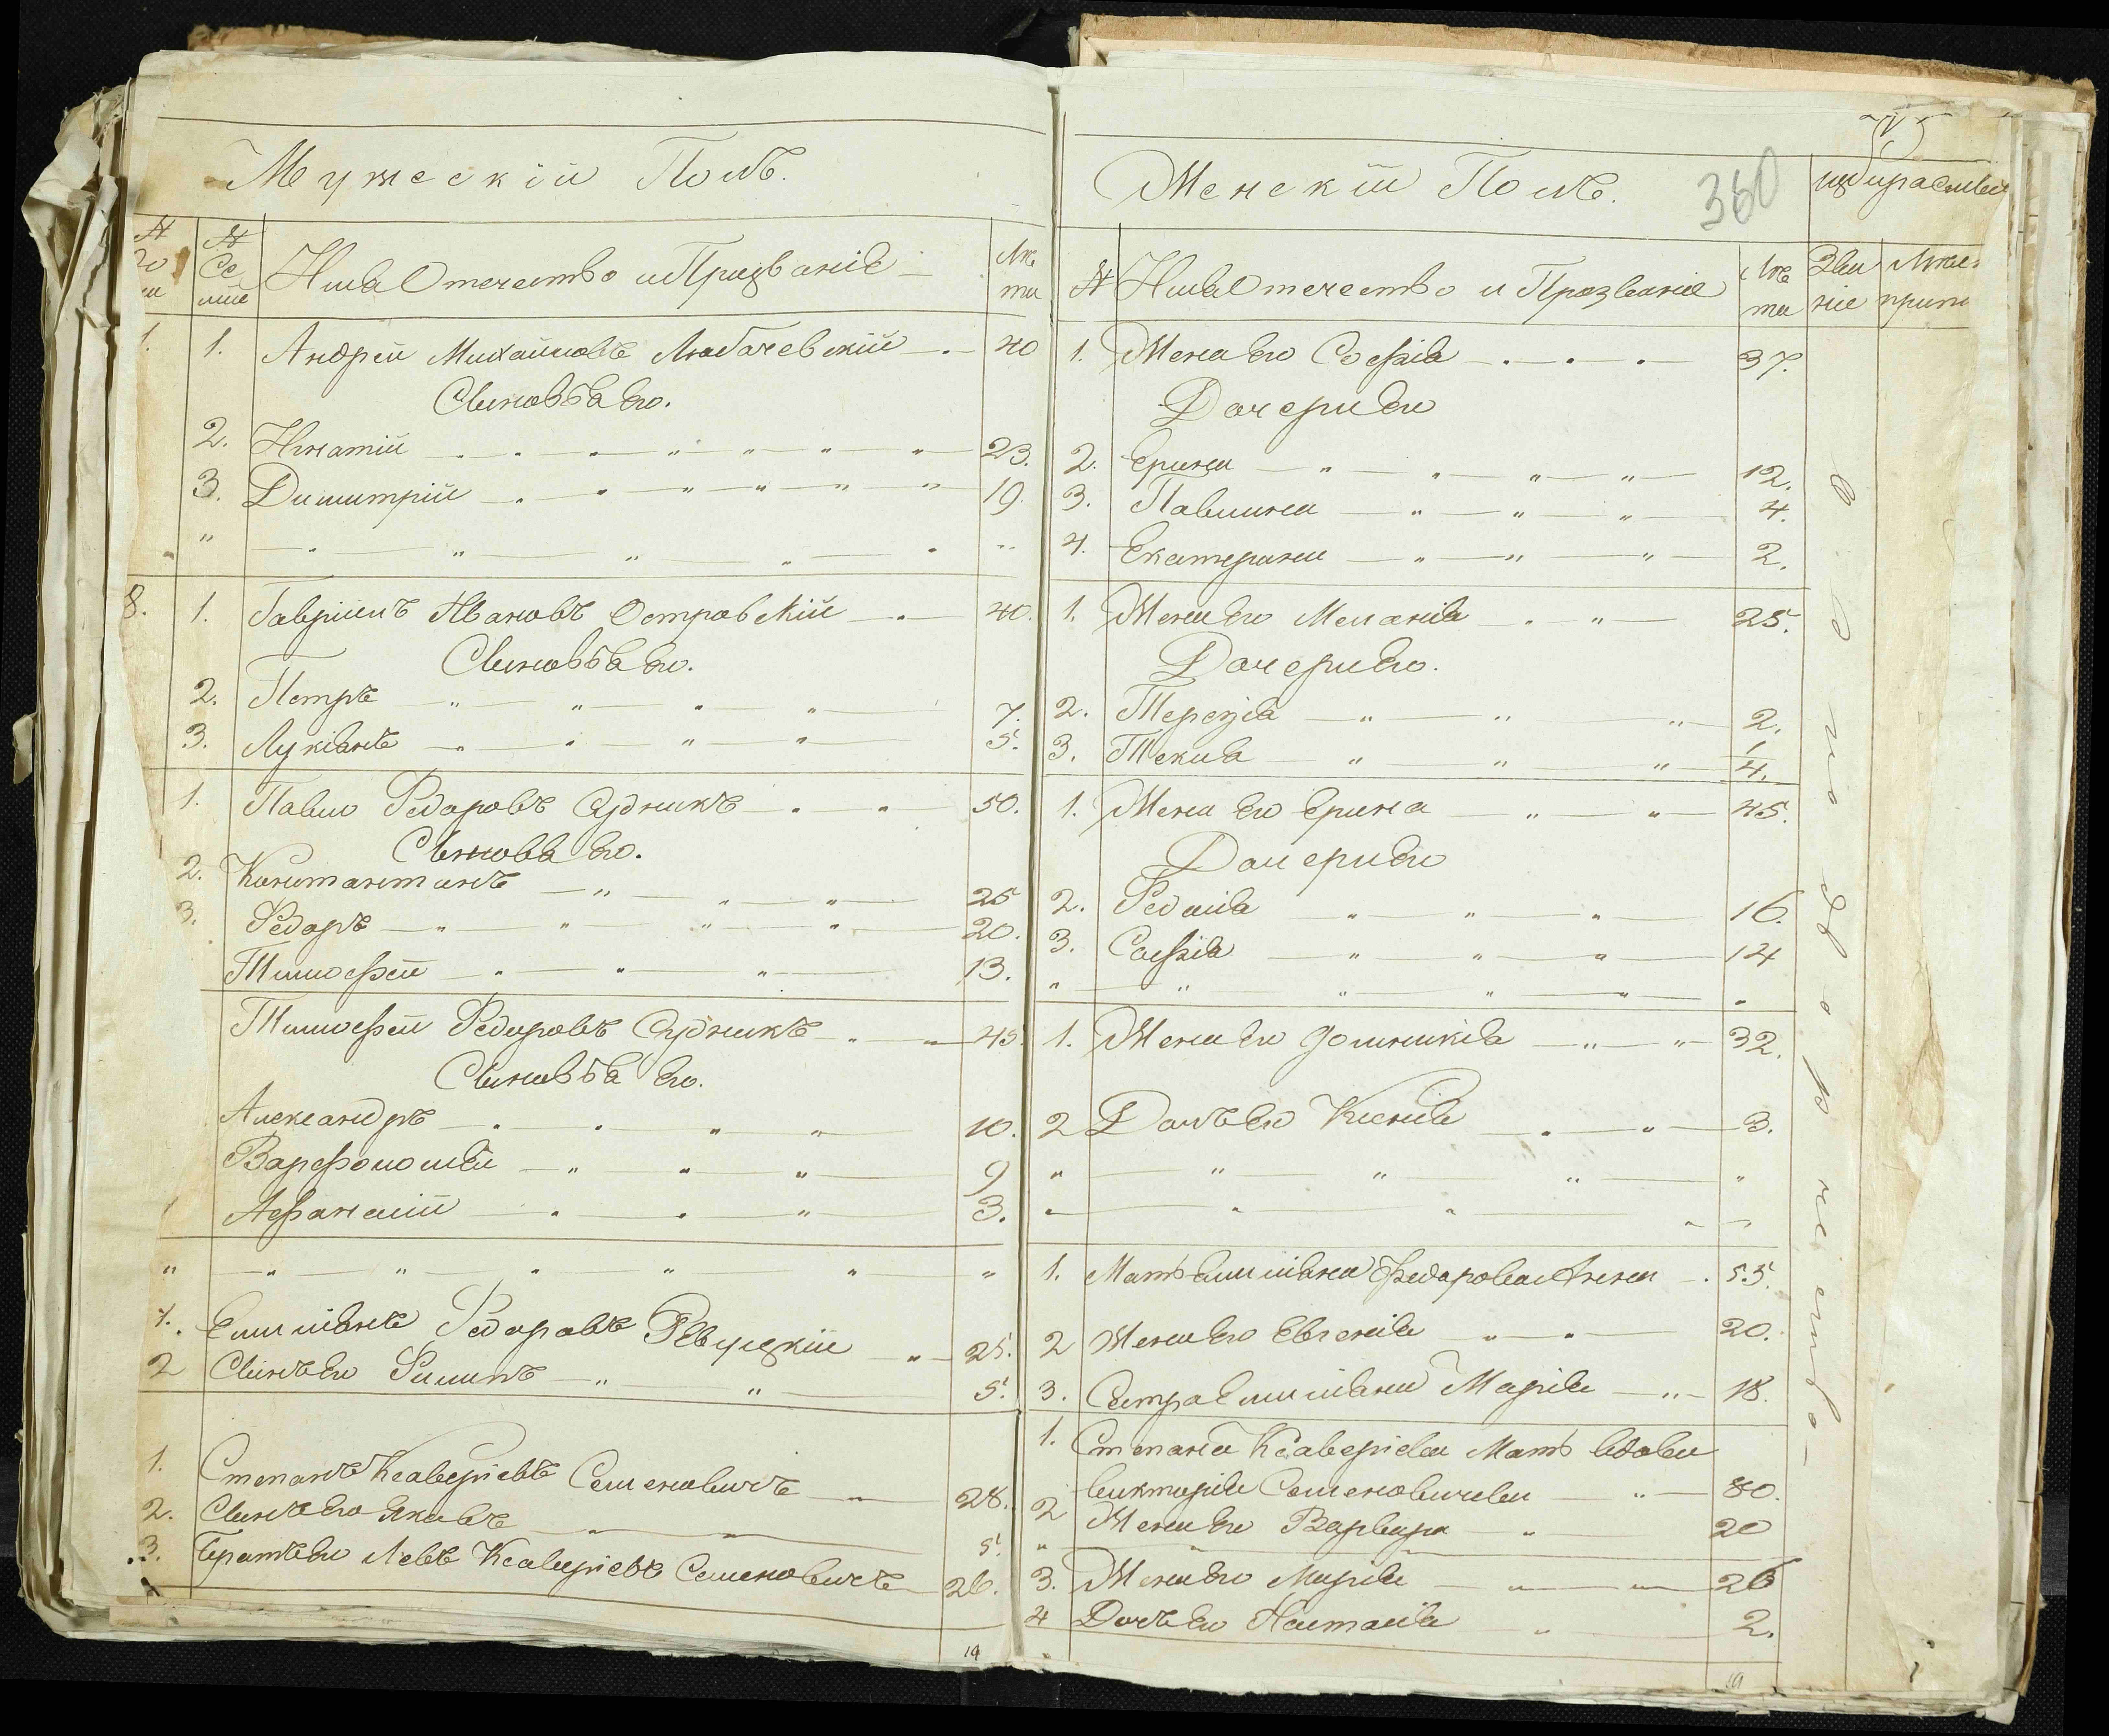 Мужескій Полъ.
№ Се мьи
Имя Отечество и Прозваніе
Лѣта
1. 1. Андрей Михайловъ Любачевскій 40
Сыновья его.
2. Игнатій 23.
3. Димитрій 19.
8. 1. Гавріилъ Ивановъ Островскій 40.
Сыновья его.
2. Петръ 7.
3. Лукіянъ 5.
1. Павло Федоровъ Судникъ 50.
Сыновья его.
2. Константинъ 25
3. Федоръ 20.
Тимофей 13.
Тимофей Федоровъ Судникъ 45.
Сыновья его.
Александръ 10.
Варфоломей 9
Афанасій 3.
1. Емиліянъ Федоровъ Ревуцкій 25.
2 Сынъ его Филипъ 5.
1. Степанъ Ксаверіевъ Семеновичъ 28.
2. Сынъ его Яковъ 5.
3. Братъ его Левъ Ксаверіевъ Семеновичъ 26.
19
Женскій Полъ.
360
№ Имя Отечество и Прозваніе
Лѣта
Званіе
1. Жена его Софія 37.
Дочери его
2. Ерина 12.
3. Павлина 4.
4. Екатерина 2.
1. Жена его Меланія 25.
Дочери его.
2. Терезія 2.
3. Текля 1/4.
1. Жена его Ерина 45.
Дочери его
2. Федосія 16.
3. Софія 14
1. Жена его Доминикія 32.
2 Дочь его Ксенія 3.
1. Мать Емиліяна Федорова Анна 55.
2 Жена его Евгенія 20.
3. Сестра Емиліяна Марія 18.
1. Степана Ксаверіева Мать вдова
Викторія Семеновичева 80.
2 Жена его Варвара 20
3. Жена его Марія 26
4 Дочь его Настасія 2.
19
Однодворчество